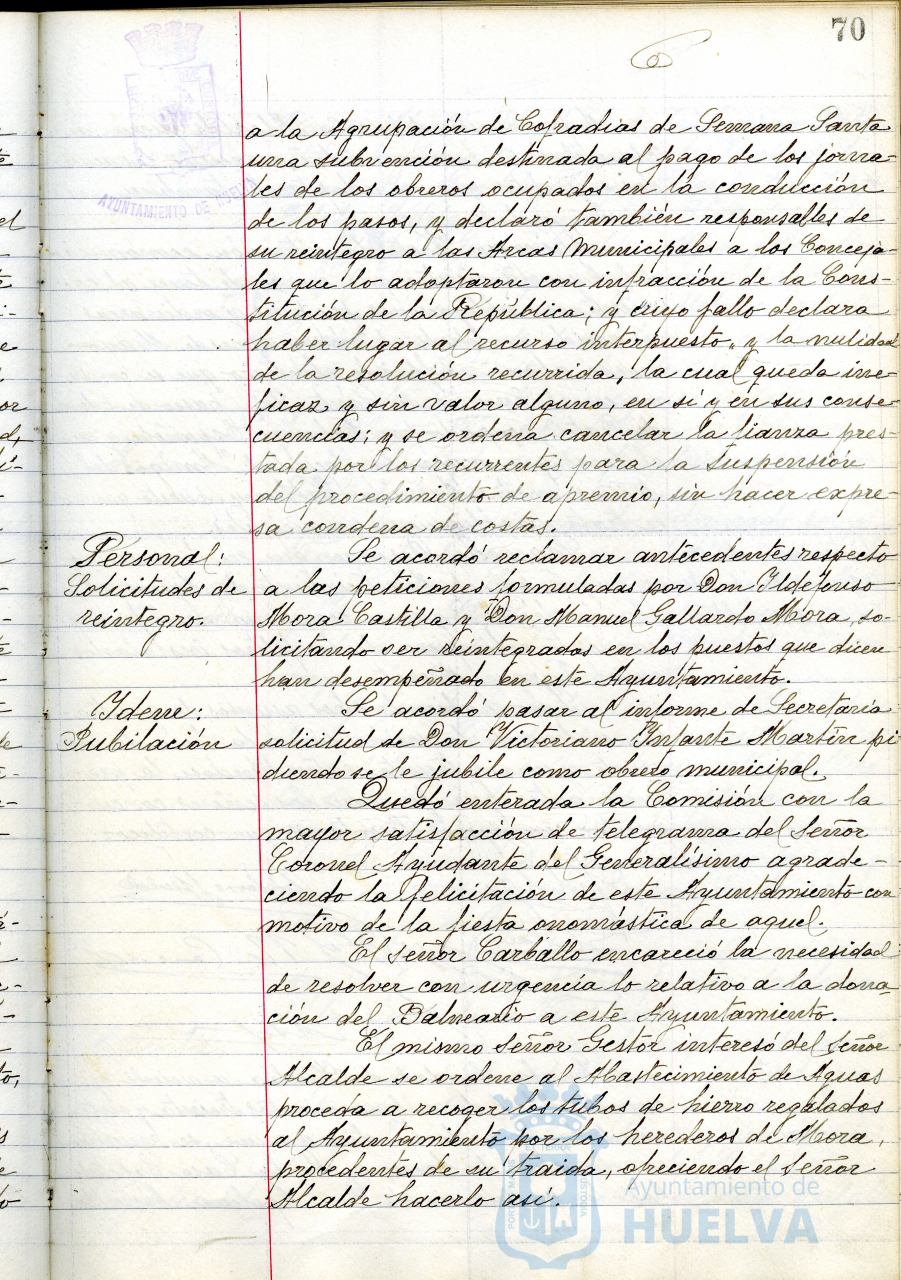 70
AYUNTAMIENTO DE HUELVA
a la Agrupación de Cofradias de Semana Santa
una subvención destinada al pago de los jorna-
les de los obreros ocupados en la conducción
de los pasos, y declaró también responsables de
su reintegro a las Arcas municipales a los Conceja-
les que lo adoptaron con infracción de la Cons-
titución de la República; y cuyo fallo declara
haber lugar al recurso interpuesto, y la nulidad
de la resolución recurrida, la cual queda ine-
ficaz y sin valor alguno, en si y en sus conse-
cuencias; y se ordena cancelar la fianza pres-
tada por los recurrentes para la suspensión
del procedimiento de apremio, sin hacer expre-
sa condena de costas.
Personal:
Solicitudes de
reintegro.
Se acordó reclamar antecedentes respecto
a las peticiones formuladas por Don Ildefonso
Mora Castilla y Don Manuel Gallardo Mora, so-
licitando ser reintegrados en los puestos que dicen
han desempeñado en este Ayuntamiento.
Idem:
Jubilación
Se acordó pasar al informe de Secretaria
solicitud de Don Victoriano Infante Martín pi
diendo se le jubile como obrero municipal.
Quedó enterada la Comisión con la
mayor satisfacción de telegrama del Señor
Coronel Ayudante del Generalísimo agrade-
ciendo la felicitación de este Ayuntamiento con
motivo de la fiesta onomástica de aquel.
El señor Carballo encareció la necesidad
de resolver con urgencia lo relativo a la dona-
ción del Balneario a este Ayuntamiento.
El mismo Señor Gestor interesó del Señor
Alcalde se ordene al Abastecimiento de Aguas
proceda a recoger los tubos de hierro regalados
al Ayuntamiento por los herederos de Mora,
procedentes de su traida, ofreciendo el Señor
Alcalde hacerlo así.
Ayuntamiento de
HUELVA